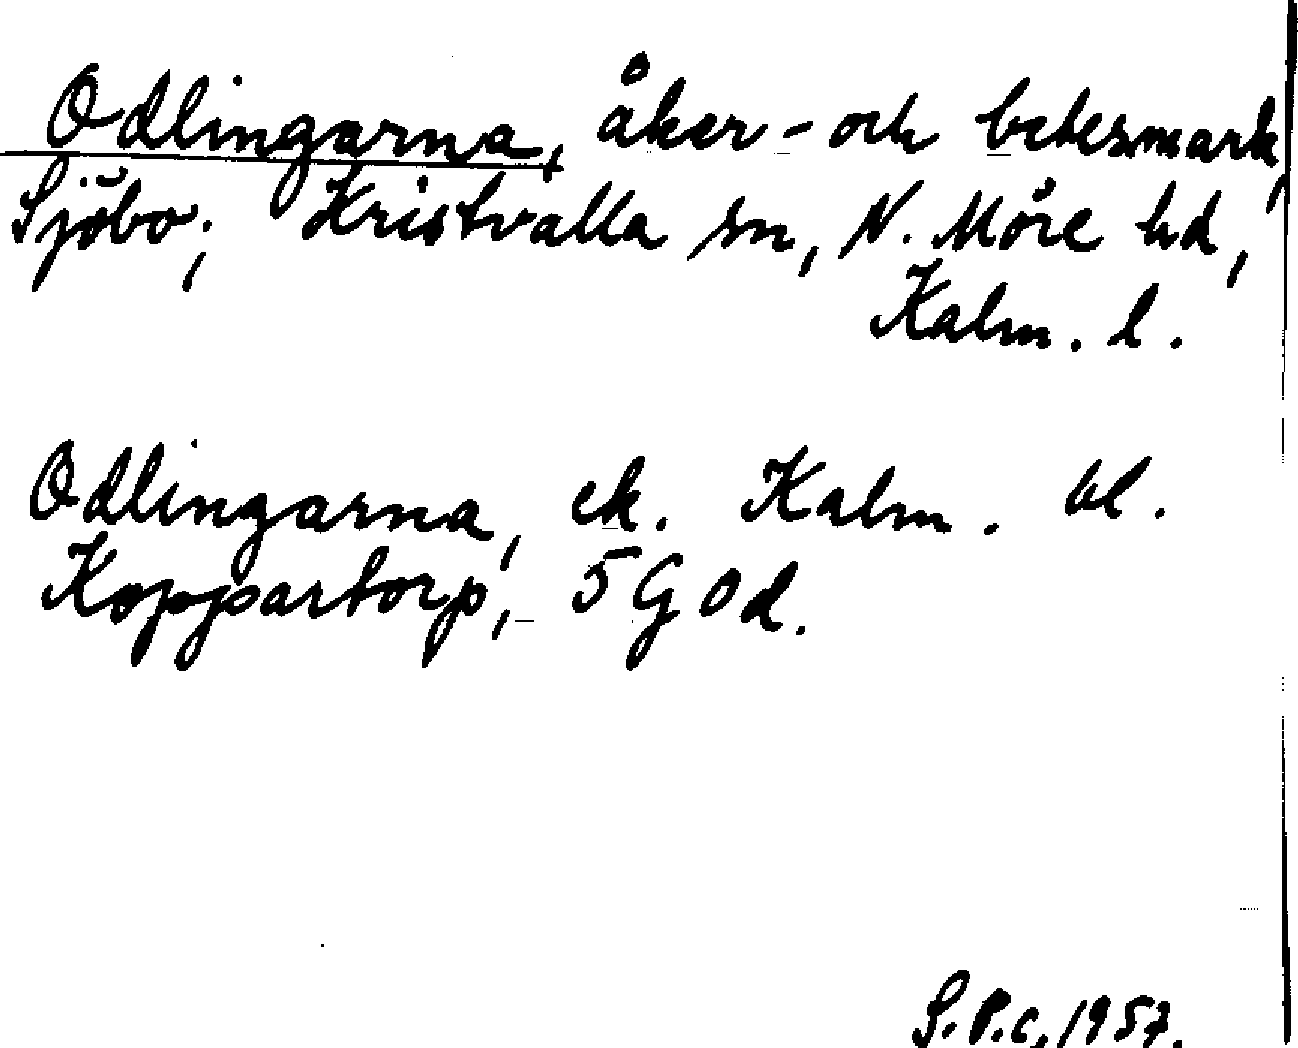 Odlingarna, åker- och betesmark,
Sjöbo; Kristvalla sn, N. Möre hd,
Kalm. l.
Odlingarna, ek. Kalm. bl.
Koppartorp, 5 G 0 d.
S.P.C. 1957.